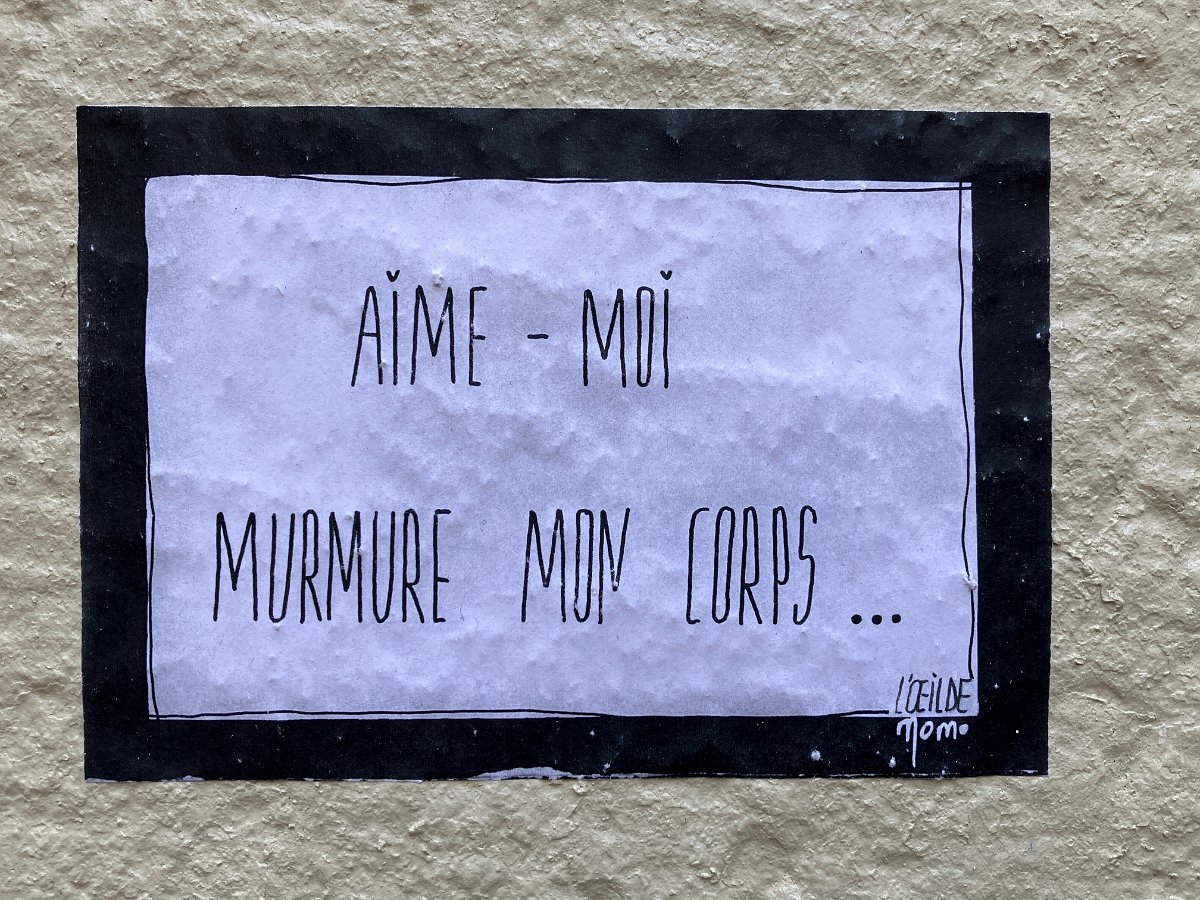 AIME - MOI
MURMURE MON CORPS ...
L'ŒILDE
nomo